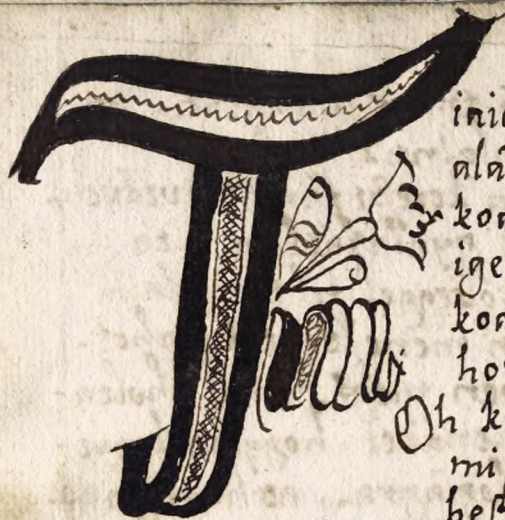 T
inic
ala
kon
ige
kon
ho
Oh k
mi
hef